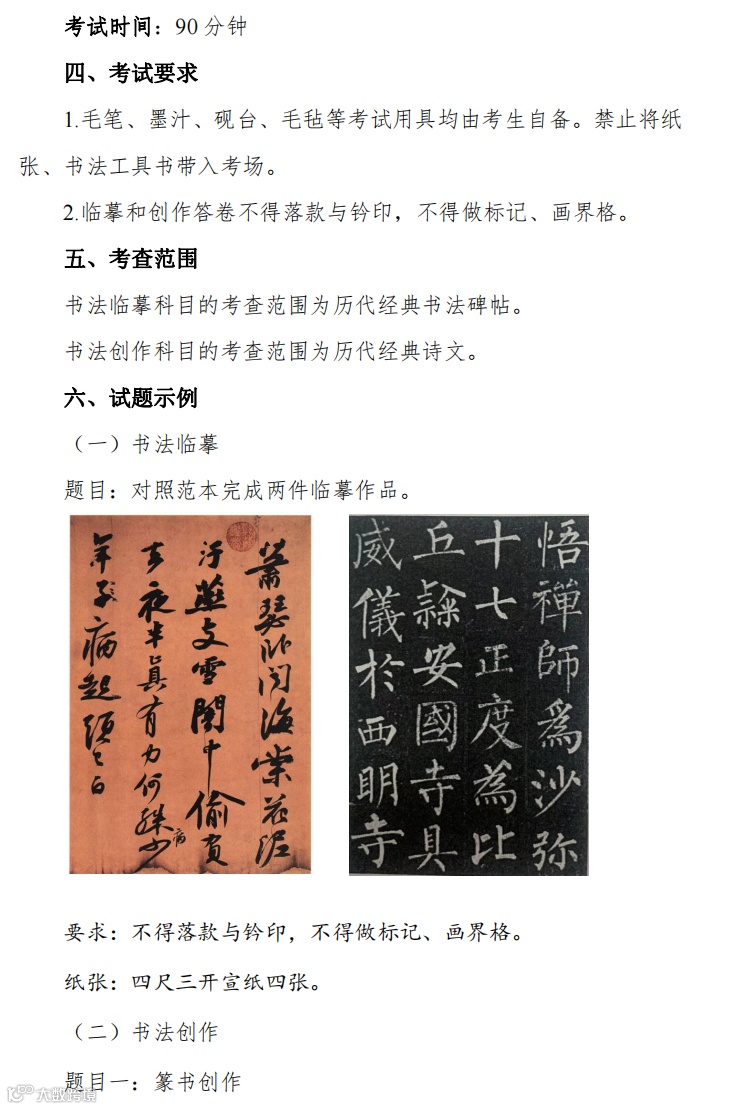 考试时间：90 分钟
四、考试要求
1.毛笔、墨汁、砚台、毛毡等考试用具均由考生自备。禁止将纸
张、书法工具书带入考场。
2.临摹和创作答卷不得落款与钤印，不得做标记、画界格。
五、考查范围
书法临摹科目的考查范围为历代经典书法碑帖。
书法创作科目的考查范围为历代经典诗文。
六、试题示例
（一）书法临摹
题目：对照范本完成两件临摹作品。
萧瑟卧闻海棠花泥
汙燕支雪闇中偷負
去夜半真有力何殊少
病
年子病起頭已白
悟禪師為沙弥
十七正度為比
丘隸安國寺具
威儀於西明寺
要求：不得落款与钤印，不得做标记、画界格。
纸张：四尺三开宣纸四张。
（二）书法创作
题目一：篆书创作
大数跨境